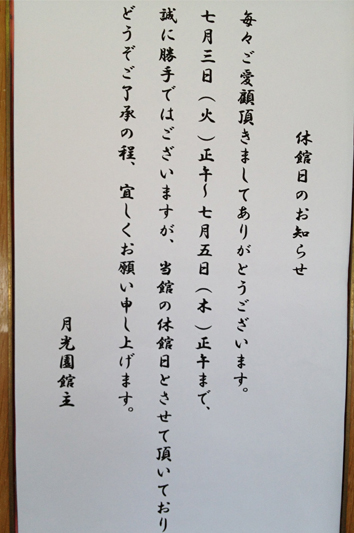 休館日のお知らせ
毎々ご愛顧頂きましてありがとうございます。
七月三日（火）正午～七月五日（木）正午まで、
誠に勝手ではございますが、当館の休館日とさせて頂いており
どうぞご了承の程、宜しくお願い申し上げます。
月光園館主